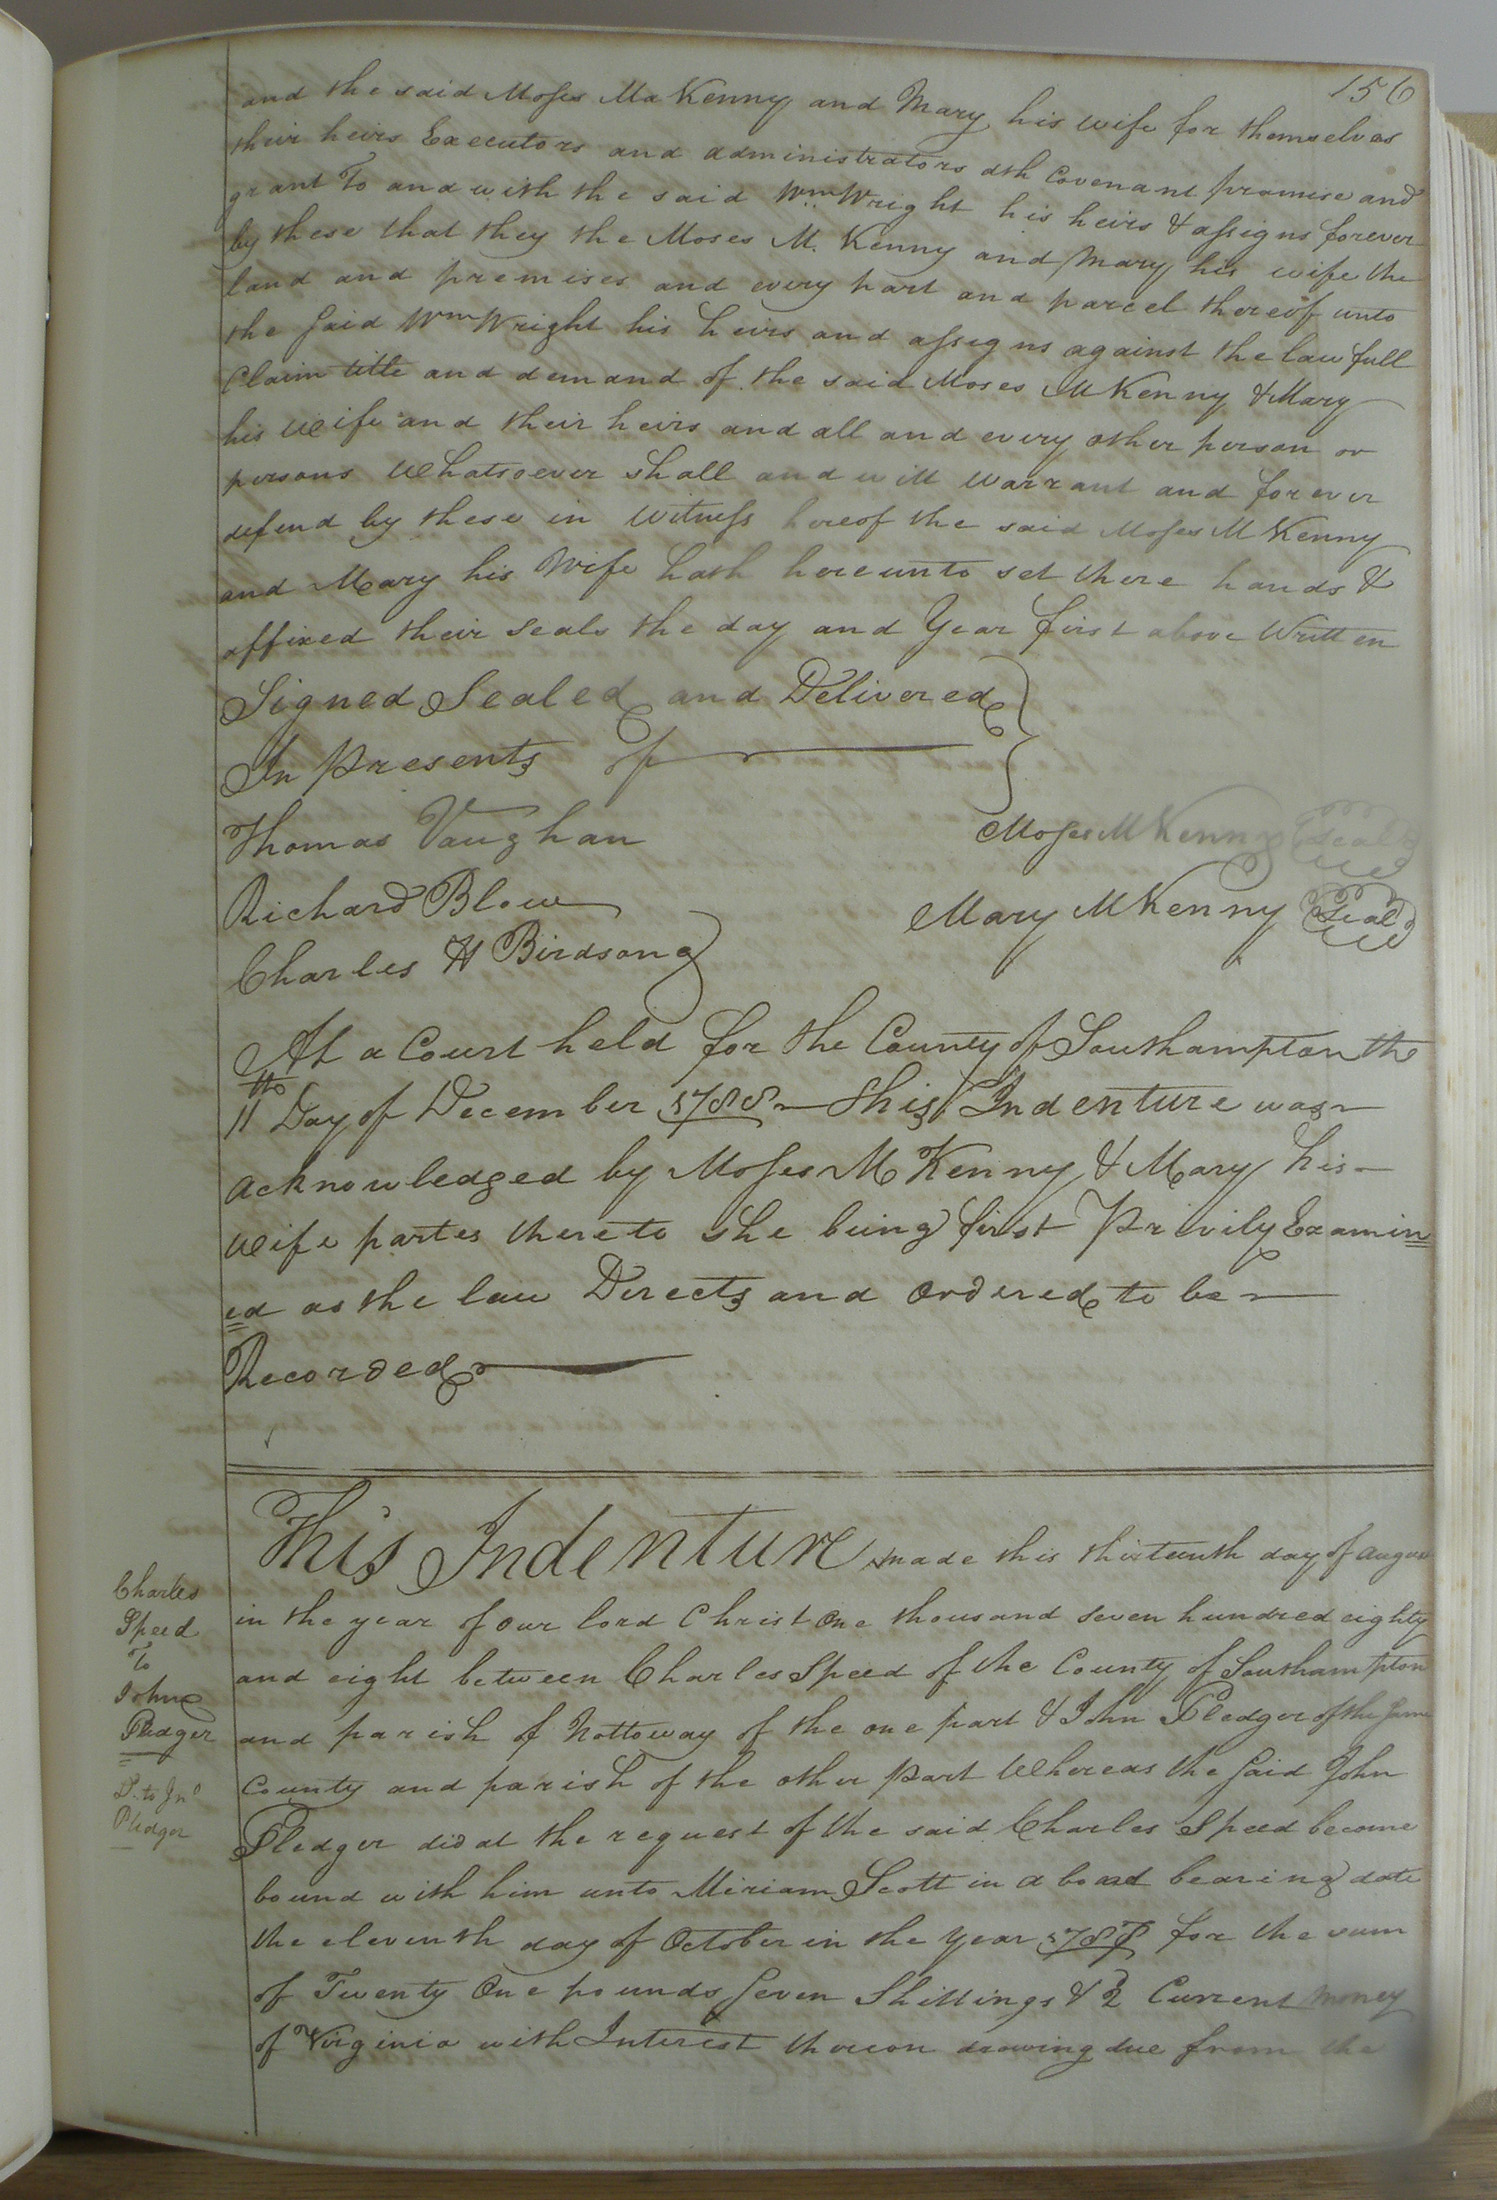 156
and the said Moses Ma Kenny and Mary his wife for themselves
their heirs Executors and administrators dth Covenant promise and
grant To and with the said Wm Wright his heirs & assigns forever
by these that they the Moses M. Kenny and Mary his wife the
land and premises and every part and parcel thereof unto
the Said Wm Wright his heirs and assigns against the lawfull
Claim title and demand of the said Moses M Kenny & Mary
his wife and their heirs and all and every other person or
persons Whatsoever shall and will warrant and forever
defend by these in Witness hereof the said Moses M Kenny
and Mary his Wife hath hereunto set there hands &
affixed their seals the day and Year first above Written
Signed Sealed and Delivered
In Presents of
Thomas Vaughan
Moses M Kenny Seal
Richard Blow
Mary M Kenny Seal
Charles H Birdsong
At a Court held for the County of Southampton the
11th Day of December 1788 this Indenture was
acknowledged by Moses M Kenny & Mary his
wife partes thereto she being first Privily Examin
ed as the law Derects and ordered to be
Recorded
This Indenture made this thirteenth day of Augus
in the year of our lord Christ One thousand seven hundred eighty
and eight between Charles Speed of the County of Southampton
and parish of Nottoway of the one part & John Pledger of the Same
County and parish of the other part Whereas the Said John
Pledger did at the request of the said Charles Speed become
bound with him unto Miriam Scott in a boand bearing date
the eleventh day of October in the Year for the sum
of Twenty One pounds Seven Shillings & 2 Current money
of Virginia with Interest thereon drawing due from the
Charles
Speed
To
John
Pledger
D. to Jno
Pledger